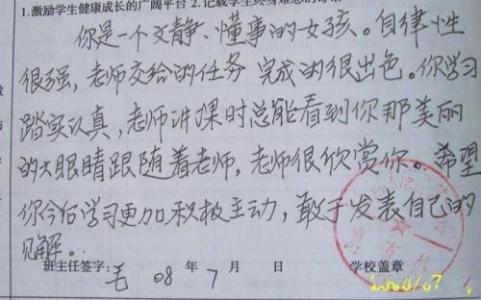 1.激励学生健康成长的广阔平台 2.记载学生终身难忘的
你是一个文静、懂事的女孩。自律性
很强,老师交给的任务完成的很出色。你学习
踏实认真,老师讲课时总能看到你那美丽
的大眼睛跟随着老师,老师很欣赏你。希望
你今后学习更加积极主动,敢于发表自己的
见解。
班主任签字: 08 年 7 月 日 学校盖章